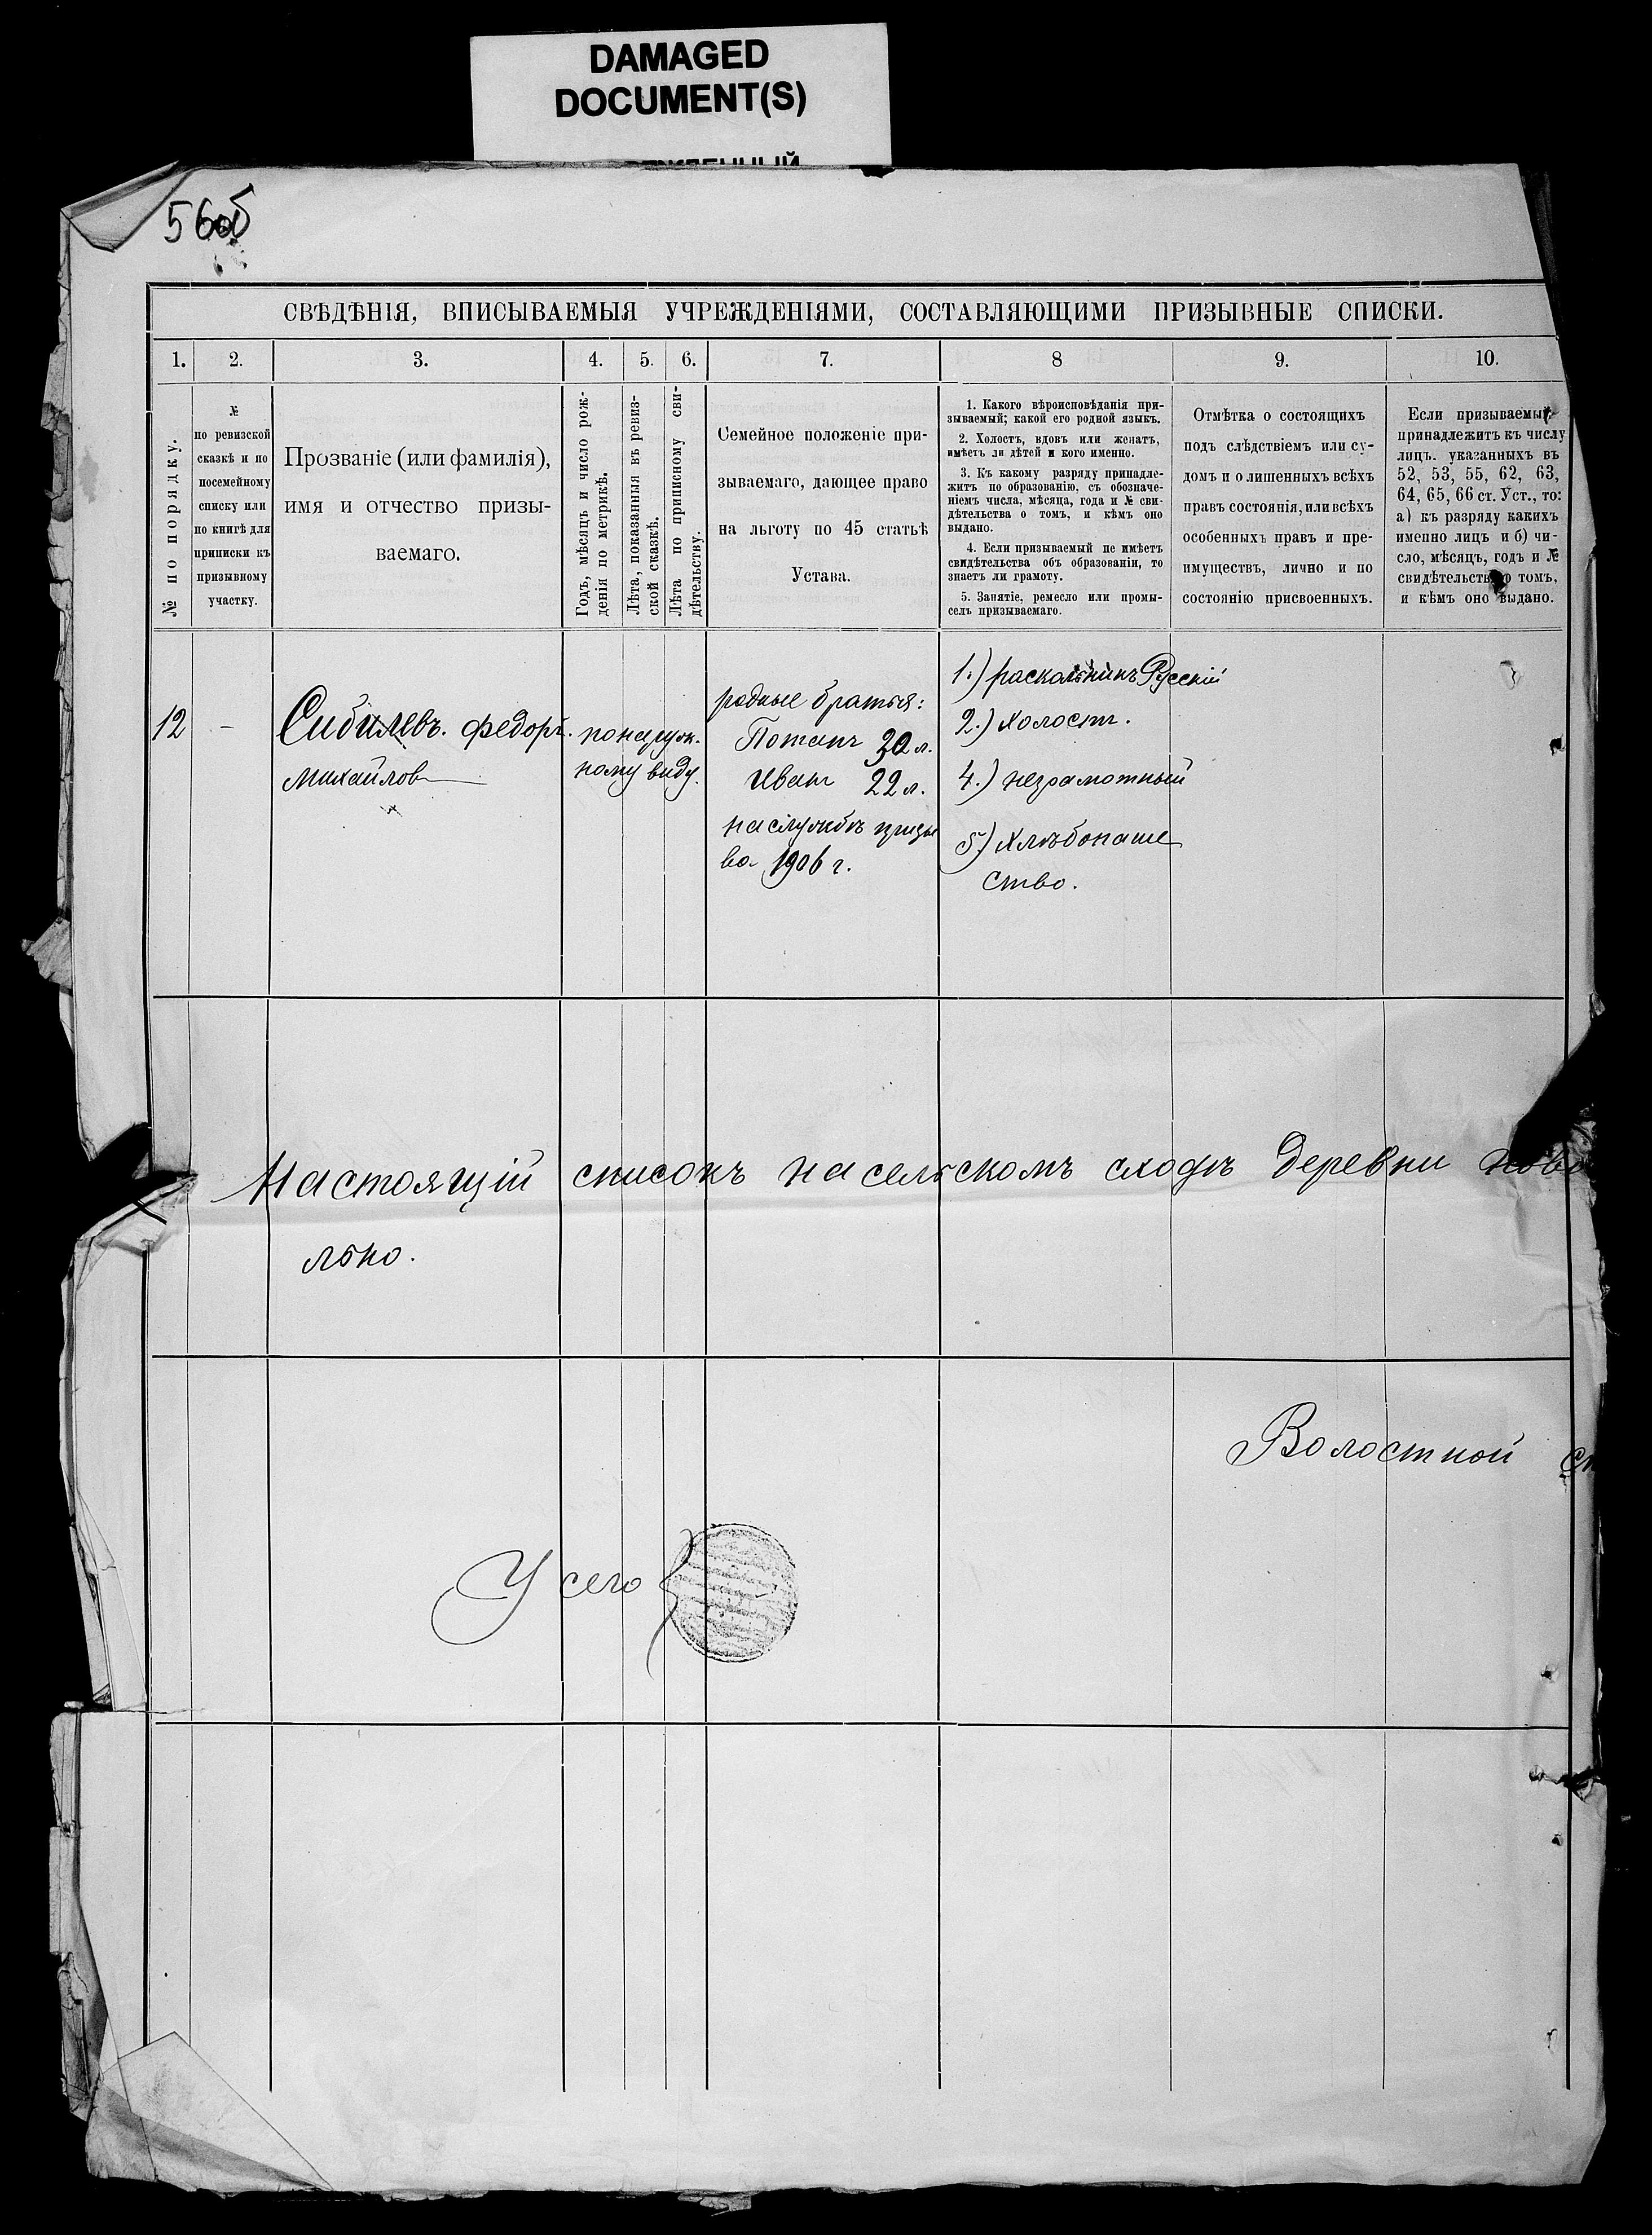 DAMAGED
DOCUMENT(S)
560б
СВѢДѢНІЯ, ВПИСЫВАЕМЫЯ УЧРЕЖДЕНІЯМИ, СОСТАВЛЯЮЩИМИ ПРИЗЫВНЫЕ СПИСКИ.
1. 2. 3. 4. 5. 6. 7. 8 9. 10.
№ по порядку.
№
по ревизской
сказкѣ и по
посемейному
списку или
по книгѣ для
приписки къ
призывному
участку.
Прозваніе (или фамилія),
имя и отчество призы-
ваемаго.
Годъ, мѣсяцъ и число рож-
денія по метрикѣ.
Лѣта, показанныя въ ревиз-
ской сказкѣ.
Лѣта по приписному сви-
дѣтельству.
Семейное положеніе при-
зываемаго, дающее право
на льготу по 45 статьѣ
Устава.
1. Какого вѣроисповѣданія при-
зываемый; какой его родной языкъ.
2. Холостъ, вдовъ или женатъ,
имѣетъ ли дѣтей и кого именно.
3. Къ какому разряду принадле-
житъ по образованію, съ обозначе-
ніемъ числа, мѣсяца, года и № сви-
дѣтельства о томъ, и кѣмъ оно
выдано.
4. Если призываемый не имѣетъ
свидѣтельства объ образованіи, то
знаетъ ли грамоту.
5. Занятіе, ремесло или промы-
селъ призываемаго.
Отмѣтка о состоящихъ
подъ слѣдствіемъ или су-
домъ и о лишенныхъ всѣхъ
правъ состоянія, или всѣхъ
особенныхъ правъ и пре-
имуществъ, лично и по
состоянію присвоенныхъ.
Если призываемый
принадлежитъ къ числу
лицъ, указанныхъ въ
52, 53, 55, 62, 63,
64, 65, 66 ст. Уст., то:
а) къ разряду какихъ
именно лицъ и б) чи-
сло, мѣсяцъ, годъ и №
свидѣтельства о томъ,
и кѣмъ оно выдано.
12 — Сибилевъ. Федоръ.
Михайлов
по наруж-
ному виду.
родные братья:
Потапъ 30 л.
Иванъ 22 л.
на службѣ призы
ва 1906 г.
1.) раскольникъ Русскій
2.) Холостъ.
4.) неграмотный
5) Хлѣбопаше
ство.
Настоящій списокъ на сельскомъ сходѣ деревни
льно.
Волостной
У сего